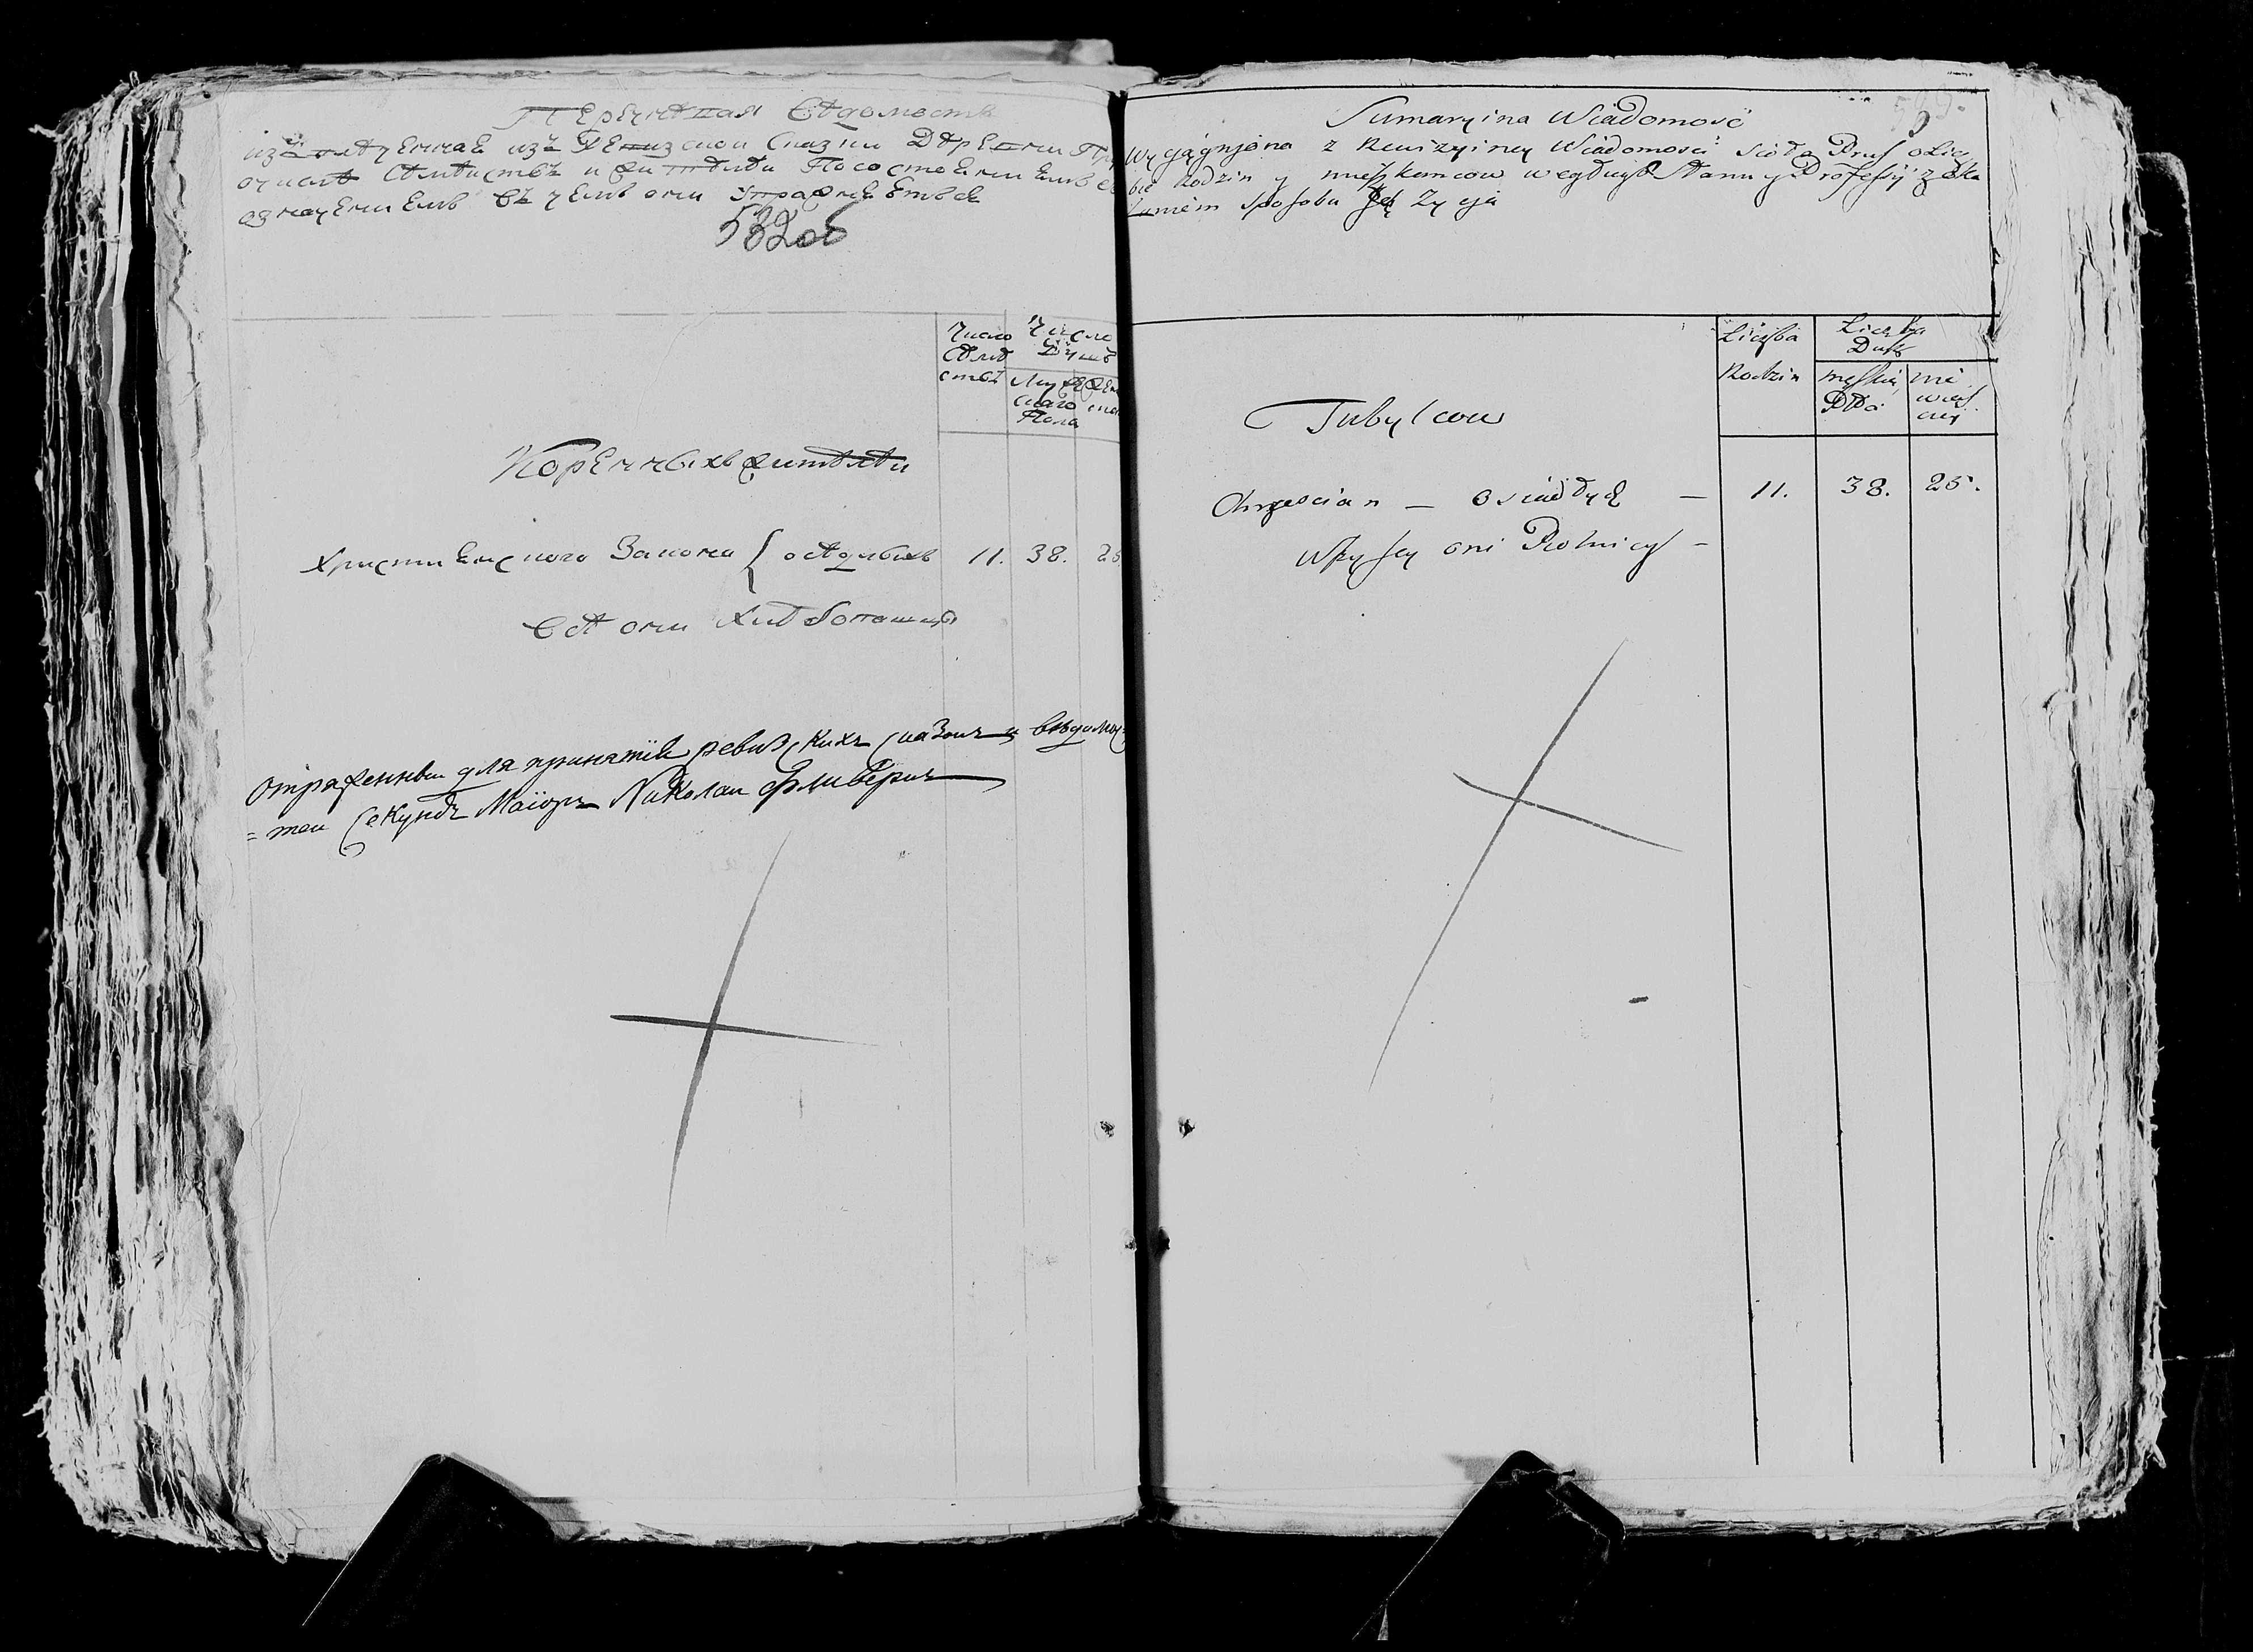 Перечневая Ведомость
извлеченная из Ревизской Сказки Деревни
о числе Семействъ и жителей По состоянiемъ
означенiемъ въ чемъ они упражняются
582об
Число Семействъ
Число Душъ
Мужескаго Пола
Коренныхъ жителей
Христiенского Закона { оседлыхъ 11. 38. 25
Все они хлебопашцы
отряженный для принятiя ревизскихъ сказокъ и вѣдомос=
=тей Секундъ Маiоръ Николай Фливеркъ
Sumaryina Wiadomosć
Wyciągnjona z Rewizyiney Wiadomosci Sioła Prus o Licz
bie Rodzin y mieszkancow według Stanu y Professyi z oka
zaniem sposobu Życja
Liczba Rodzin
Liczba Dusz
męskiej Płci
niewiesciey
Tubylcow
Chrzescian — Osiadłych — 11. 38. 25.
Wszyscy oni Rolnicy —